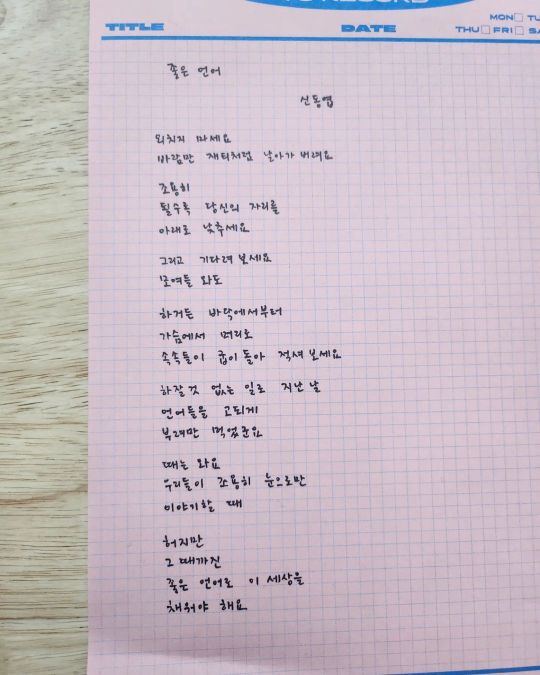 TO RECORD
MON TU
TITLE DATE THU FRI SA
좋은 언어
신동엽
외치지 마세요
바람만 재티처럼 날아가 버려요
조용히
될수록 당신의 자리를
아래로 낮추세요
그리고 기다려 보세요
모여들 와도
하거든 바닥에서부터
가슴에서 머리로
속속들이 굽이돌아 적셔 보세요
하잘것 없는 일로 지난 날
언어들을 고되게
부려만 먹었군요
때는 와요
우리들이 조용히 눈으로만
이야기할 때
허지만
그 때까진
좋은 언어로 이 세상을
채워야 해요